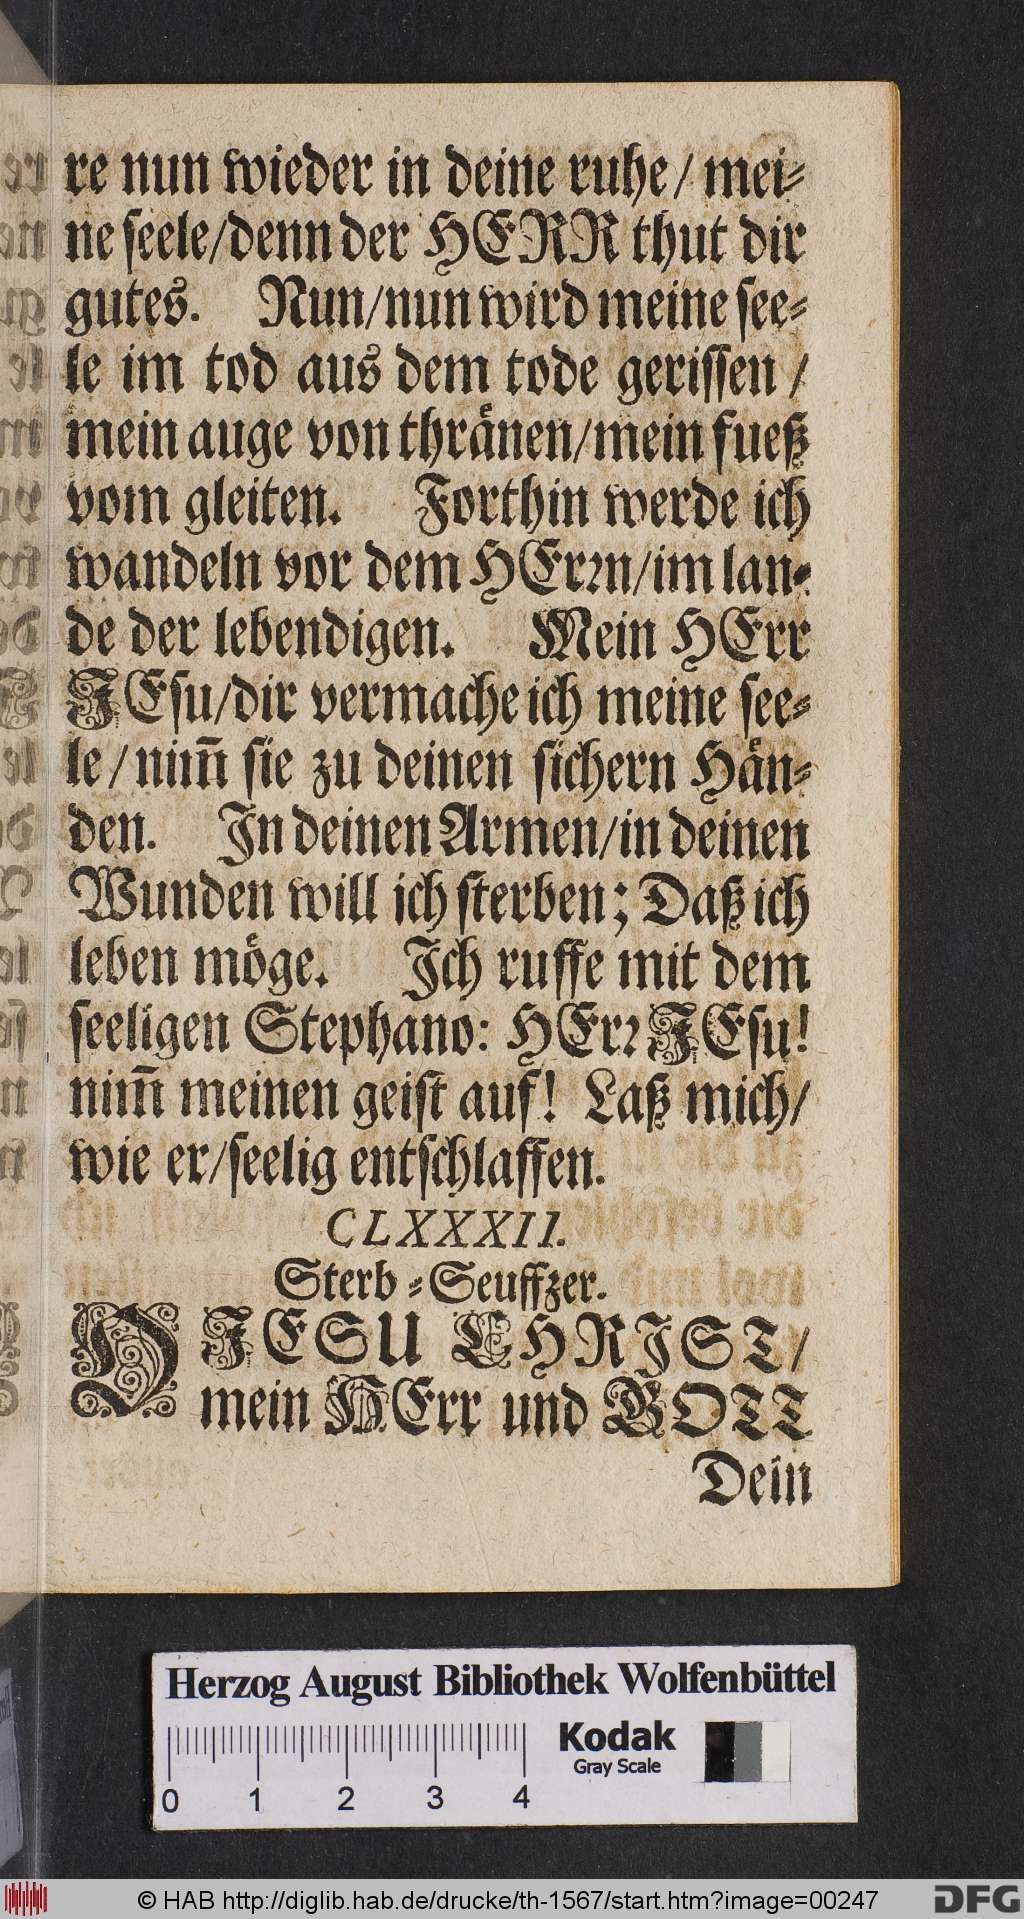 re nun wieder in deine ruhe / mei⸗
ne seele/denn der HERR thut dir
gutes. Nun/nun wird meine see⸗
le im tod aus dem tode gerissen /
mein auge von thränen/mein fueß
vom gleiten. Forthin werde ich
wandeln vor dem HErꝛn/im lan⸗
de der lebendigen. Mein HErr
JEsu/dir vermache ich meine see⸗
le / nim̅ sie zu deinen sichern Hän⸗
den. In deinen Armen/in deinen
Wunden will ich sterben; Daß ich
leben möge. Ich ruffe mit dem
seeligen Stephano: HErꝛ JEsu!
nim̅ meinen geist auf! Laß mich/
wie er/seelig entschlaffen.
CLXXXII.
Sterb⸗Seuffzer.
O JESU CHRIST/
mein HErr und GOTT
Dein
Herzog August Bibliothek Wolfenbüttel
Kodak
Gray Scale
0 1 2 3 4
© HAB http://diglib.hab.de/drucke/th-1567/start.htm?image=00247
DFG